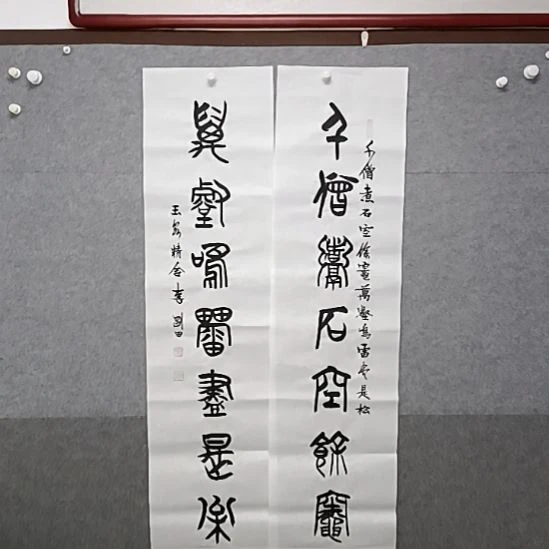 千僧煮石空餘竈萬壑鳴雷盡是松
千僧煮石空餘竈
萬壑鳴雷盡是松
玉泉精舍